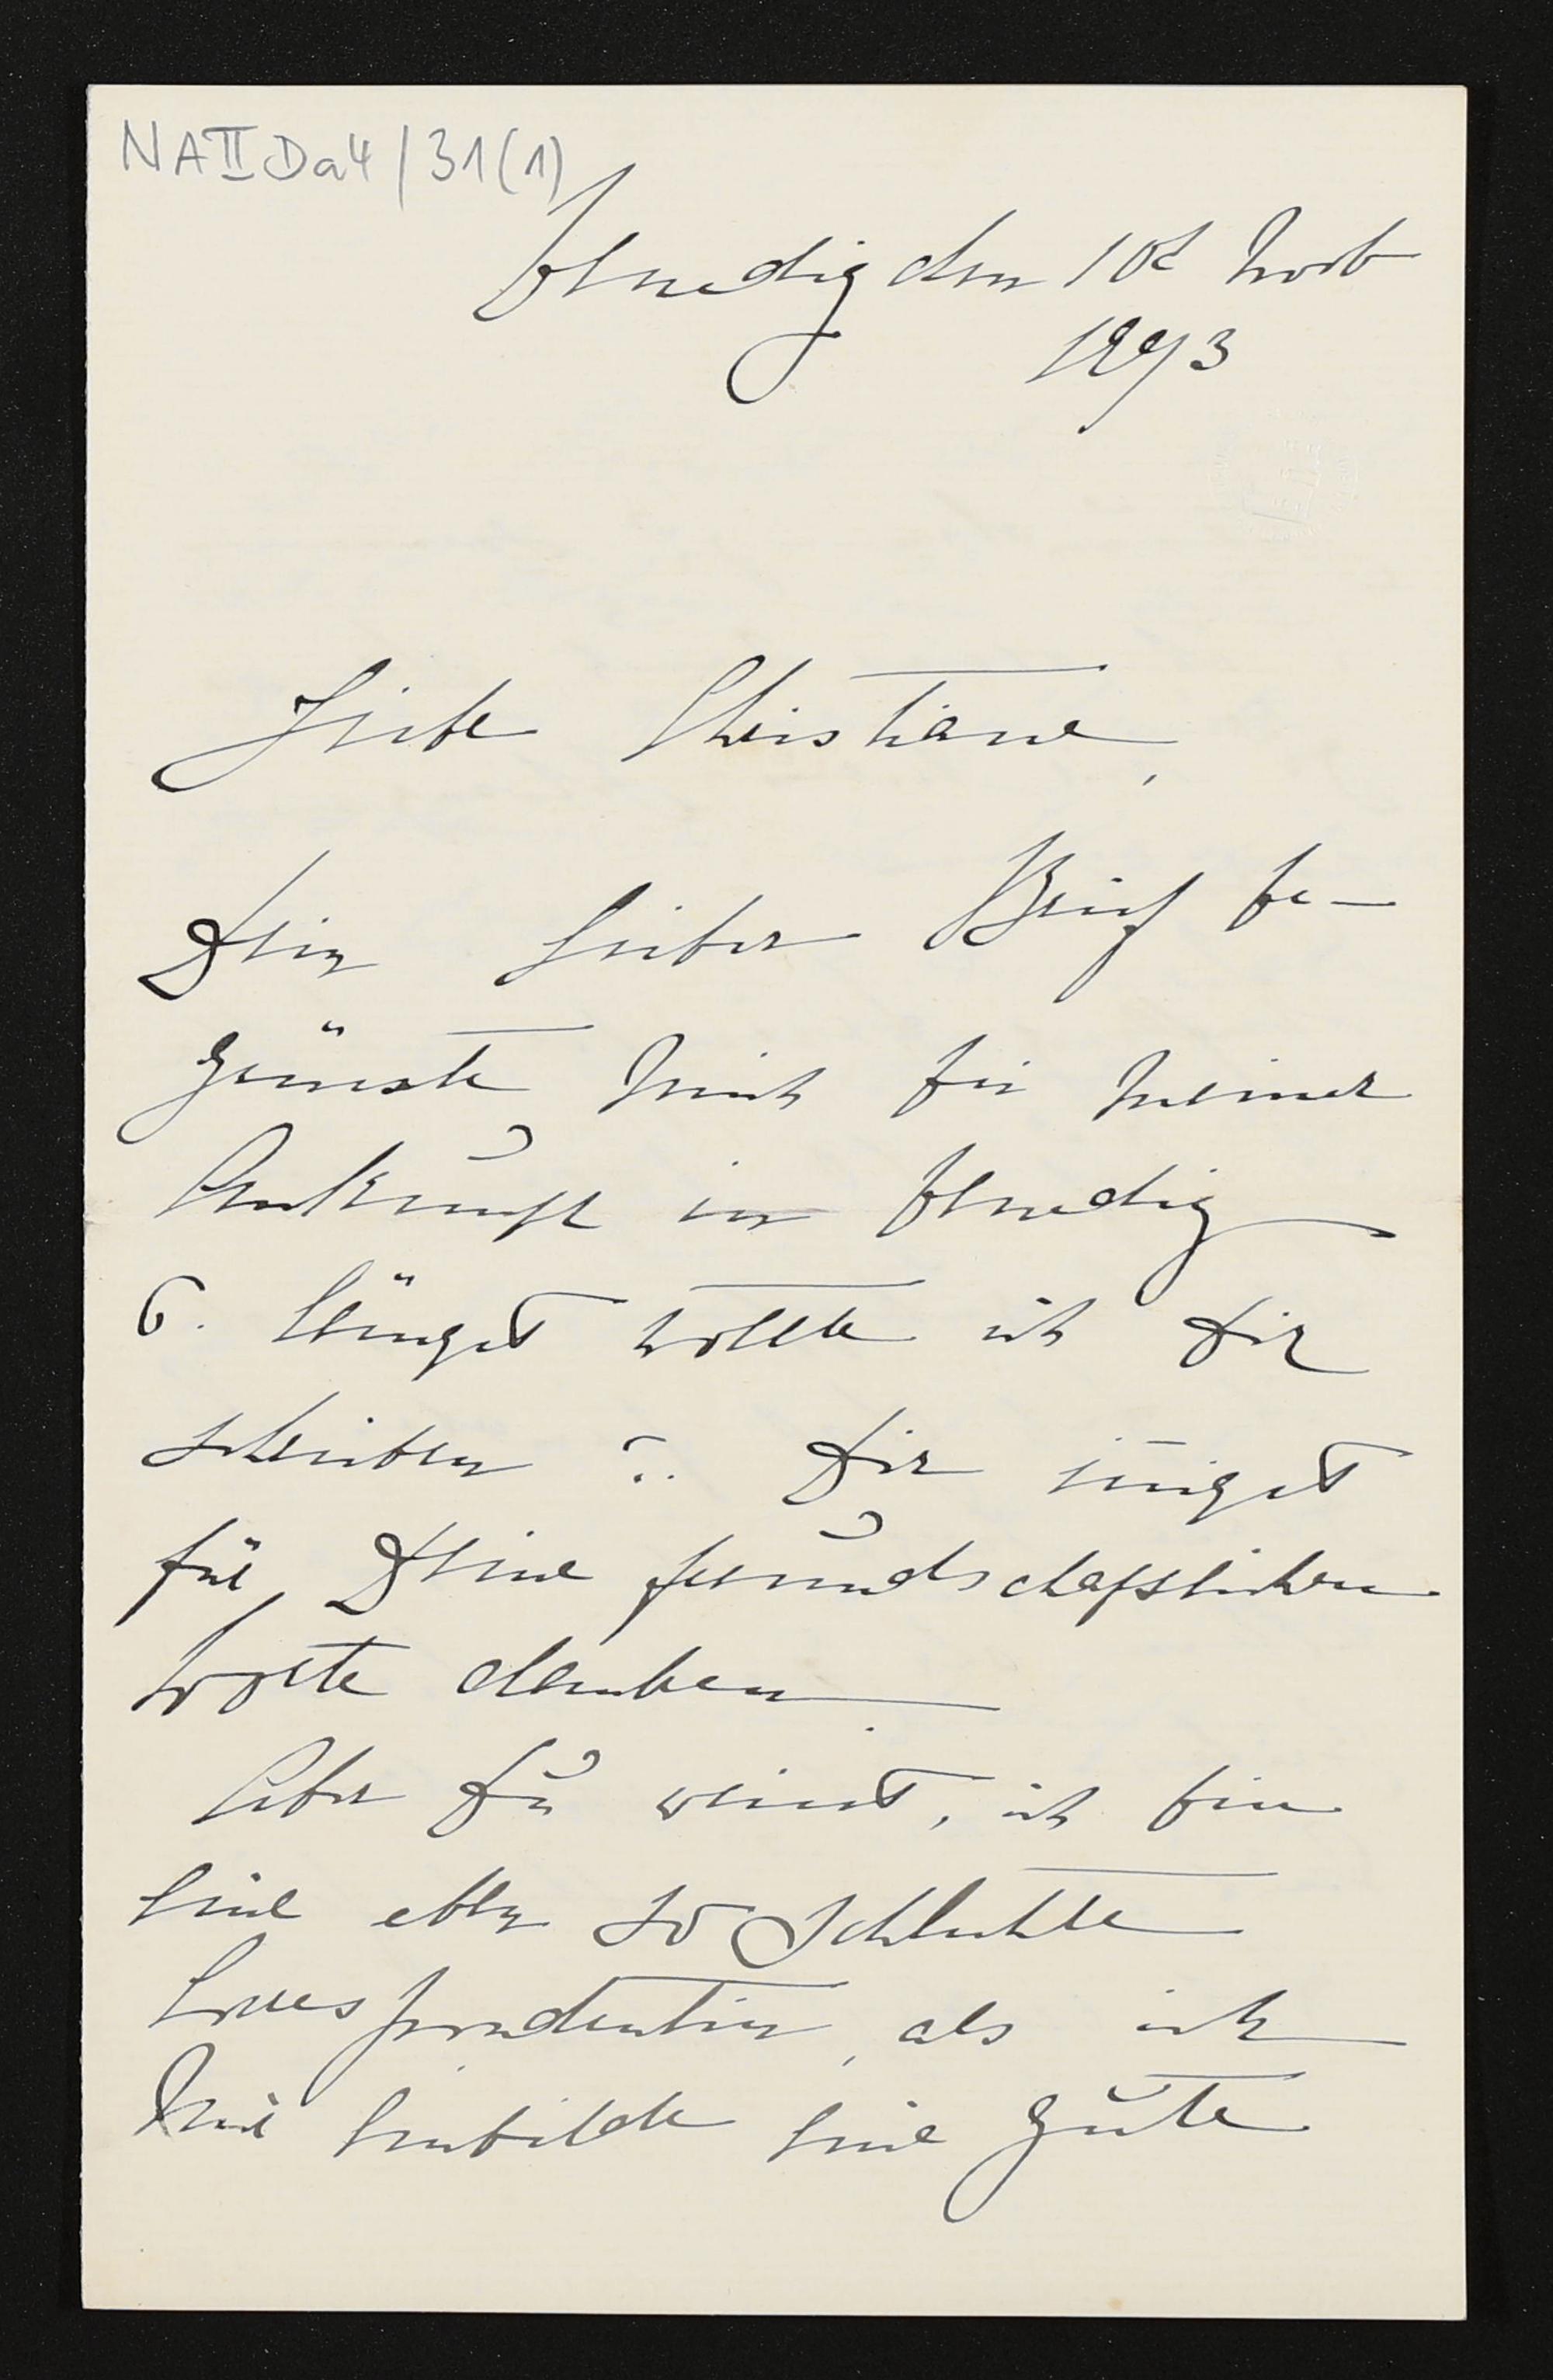 NAIIDa4/31(1)
Venedig den 10t Novb
1893
Liebe Christiane,
Dein lieber Brief be-
grüsste mich bei meiner
Ankunft in Venedig
u. längst wollte ich Dir
schreiben u. Dir innigst
für Deine freundschaftlichen
Worte danken.
Aber Du weisst, ich bin
eine eben so schlechte
Correspondentin, als ich
mir einbilde eine gute